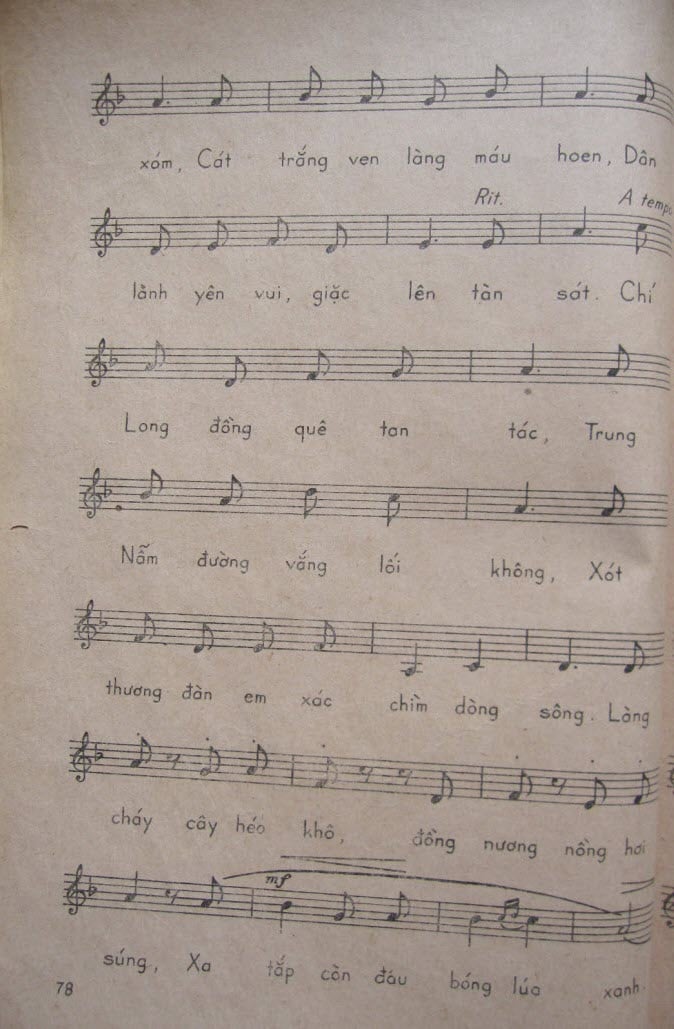 xóm, Cát trắng ven làng máu hoen, Dân
Rit. A tempo
lành yên vui, giặc lên tàn sát. Chí
Long đồng quê tan tác, Trung
Nẫm đường vắng lối không, Xót
thương đàn em xác chìm dòng sông. Làng
cháy cây héo khô, đồng nương nồng hơi
mf
súng, Xa tắp còn đâu bóng lúa xanh.
78